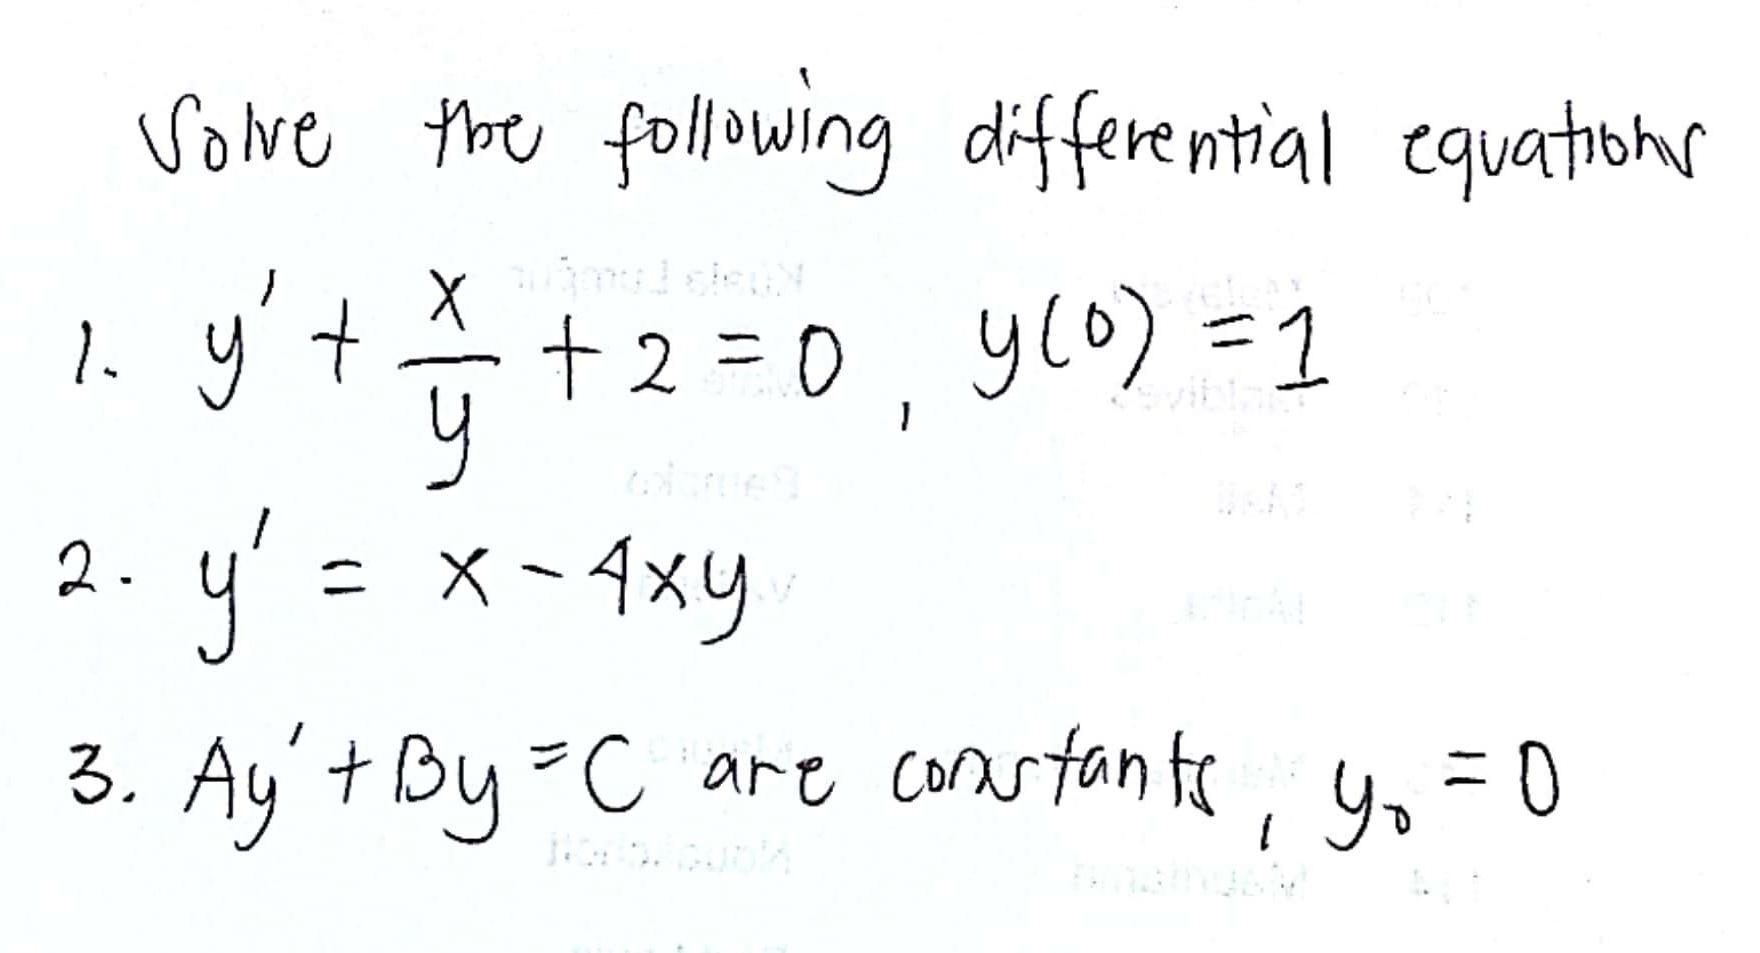 Solve the following differential equations
1. y' + x/y + 2 = 0, y(0) = 1
2. y' = x - 4xy
3. Ay' + By = C are constants, y₀ = 0